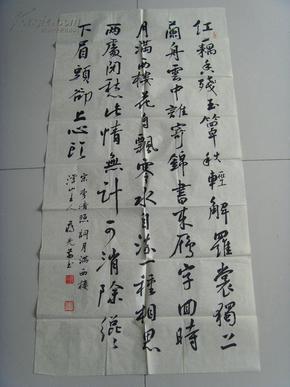 紅藕香殘玉簟秋輕解羅裳獨上
蘭舟雲中誰寄錦書來雁字回時
月滿西樓花自飄零水自流一種相思
兩處閑愁此情無計可消除纔
下眉頭卻上心頭
宋李清照詞月滿西樓
山人
書